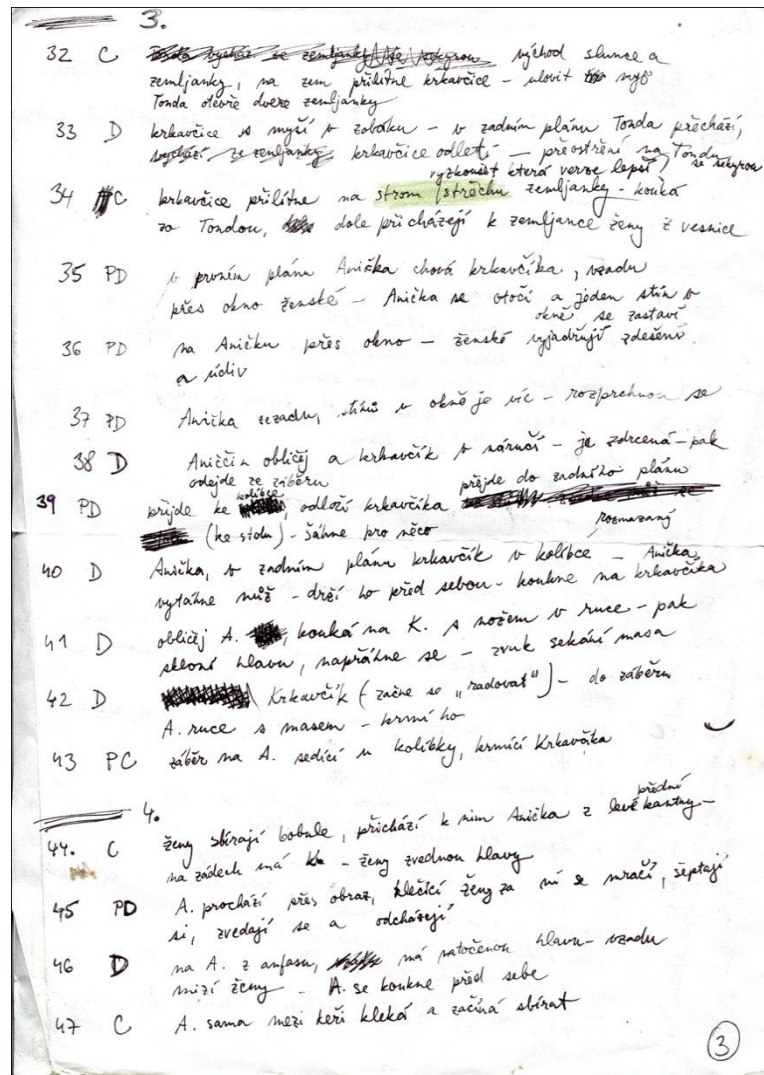 3.
32 C východ slunce a
zemljanky, na zem přilítne krkavčice - ulovit myš
Tonda otevře dveře zemljanky
33 D krkavčice s myší v zobáku - v zadním plánu Tonda přechází,
vychází ze zemljanky krkavčice odletí - přeostření na Tondu
vyzkoušet která verze lepší, se sekyrou
34 C krkavčice přilítne na strom /střechu zemljanky - kouká
za Tondou, dole přicházejí k zemljance ženy z vesnice
35 PD v prvním plánu Anička chová krkavčíka, vzadu
přes okno ženské - Anička se otočí a jeden stín v
okně se zastaví
36 PD na Aničku přes okno - ženské vyjadřují zdešení
a údiv
37 PD Anička zezadu, stínů v okně je víc - rozprchnou se
38 D Aniččin obličej a krkavčík v náručí - je zdrcená - pak
odejde ze záběru
39 PD přijde ke kolíbce, odloží krkavčíka přejde do zadního plánu
(ke stolu) - šáhne pro něco
rozmazaný
40 D Anička, v zadním plánu krkavčík v kolíbce - Anička
vytáhne nůž - drží ho před sebou - koukne na krkavčíka
41 D obličej A. , kouká na K. s nožem v ruce - pak
skloní hlavu, napřáhne se - zvuk sekání masa
42 D Krkavčík (začne se „radovat") - do záběru
A. ruce s masem - krmí ho
43 PC záběr na A. sedící u kolíbky, krmící Krkavčíka
4.
44. C ženy sbírají bobule, přichází k nim Anička z levé přední kantny -
na zádech má kk - ženy zvednou hlavy
45 PD A. prochází přes obraz, klečící ženy za ní se mračí, šeptají
si, zvedají se a odcházejí
46 D na A. z anfasu, má natočenou hlavu - vzadu
mizí ženy - A. se koukne před sebe
47 C A. sama mezi keři kleká a začíná sbírat
3